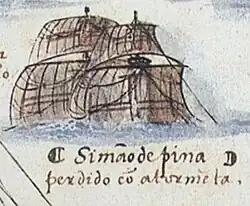 Simão de pina
perdido cõ a tormẽta,